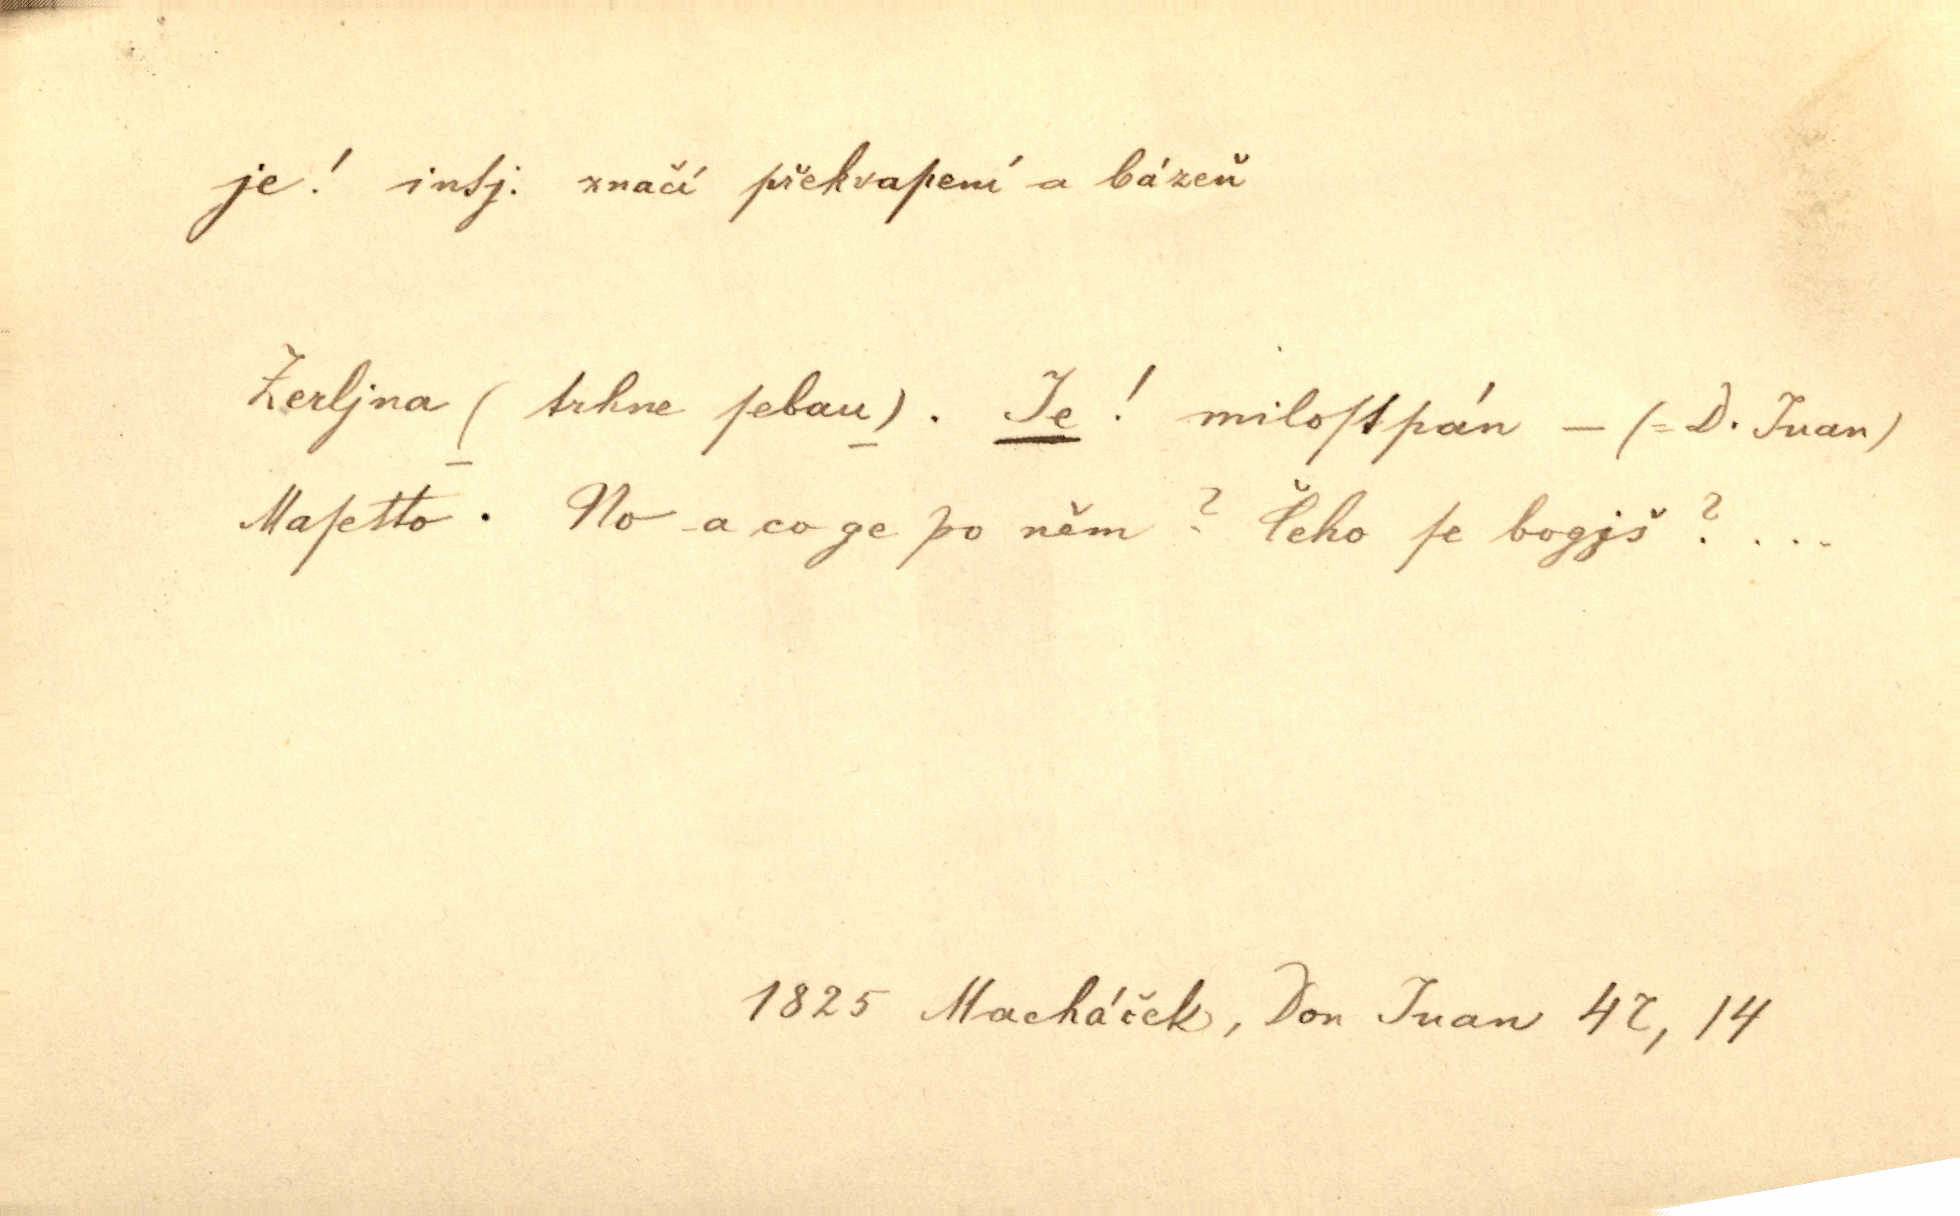 je! intj. značí překvapení a bázeň
Zerljna (trhne ſebau). Je! miloſtpán — (= D. Juan)
Maſetto. No a co ge po něm? Čeho ſe bogjš? ...
1825 Macháček, Don Juan 47, 14